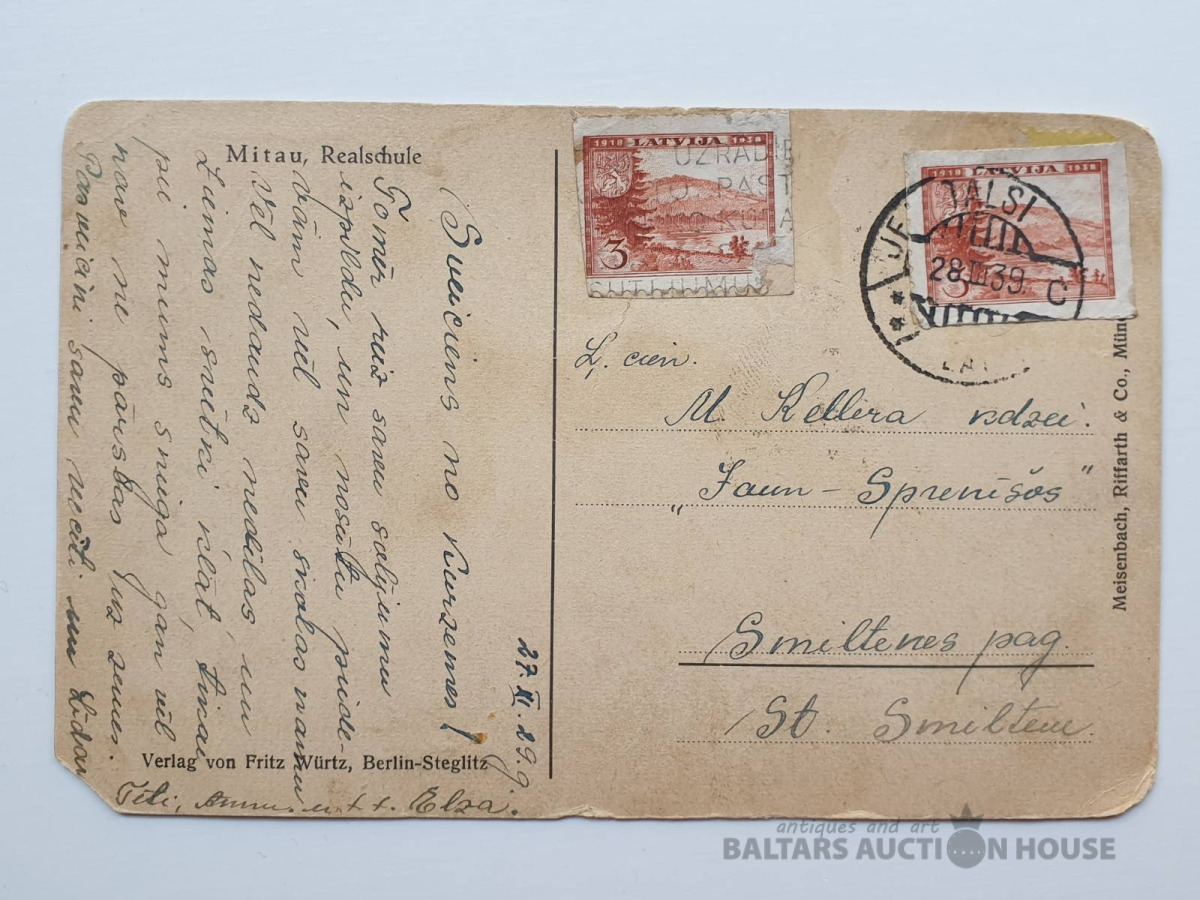 Mitau, Realschule
Sveiciens no Kurzemes!
Tomēr reiz savu solijumu
izpildu, un nosūtu piede-
vām vēl savu skolas namu
Vēl nedaudz nedēļas, un
Ziemas svētki klāt, tikai
pie mums sniega gan vēl
nav ne pārslas uz zemes.
Pasveicini savu večiti un Lidu
Teti, t. t. Elza.
27. XI. 29. g.
Verlag von Fritz Würtz, Berlin-Steglitz
1918 LATVIJA 1938
UZRĀDIE
PAST
3
SUTIJUMUS
1918 LATVIJA 1938
3
TALSI
28.III39.
C
LATV
L. cien.
M. Kellera kdzei.
"Jaun-Sprenišos"
Smiltenes pag.
St. Smiltene.
Meisenbach, Riffarth & Co., Mün
antiques and art
BALTARS AUCTION HOUSE